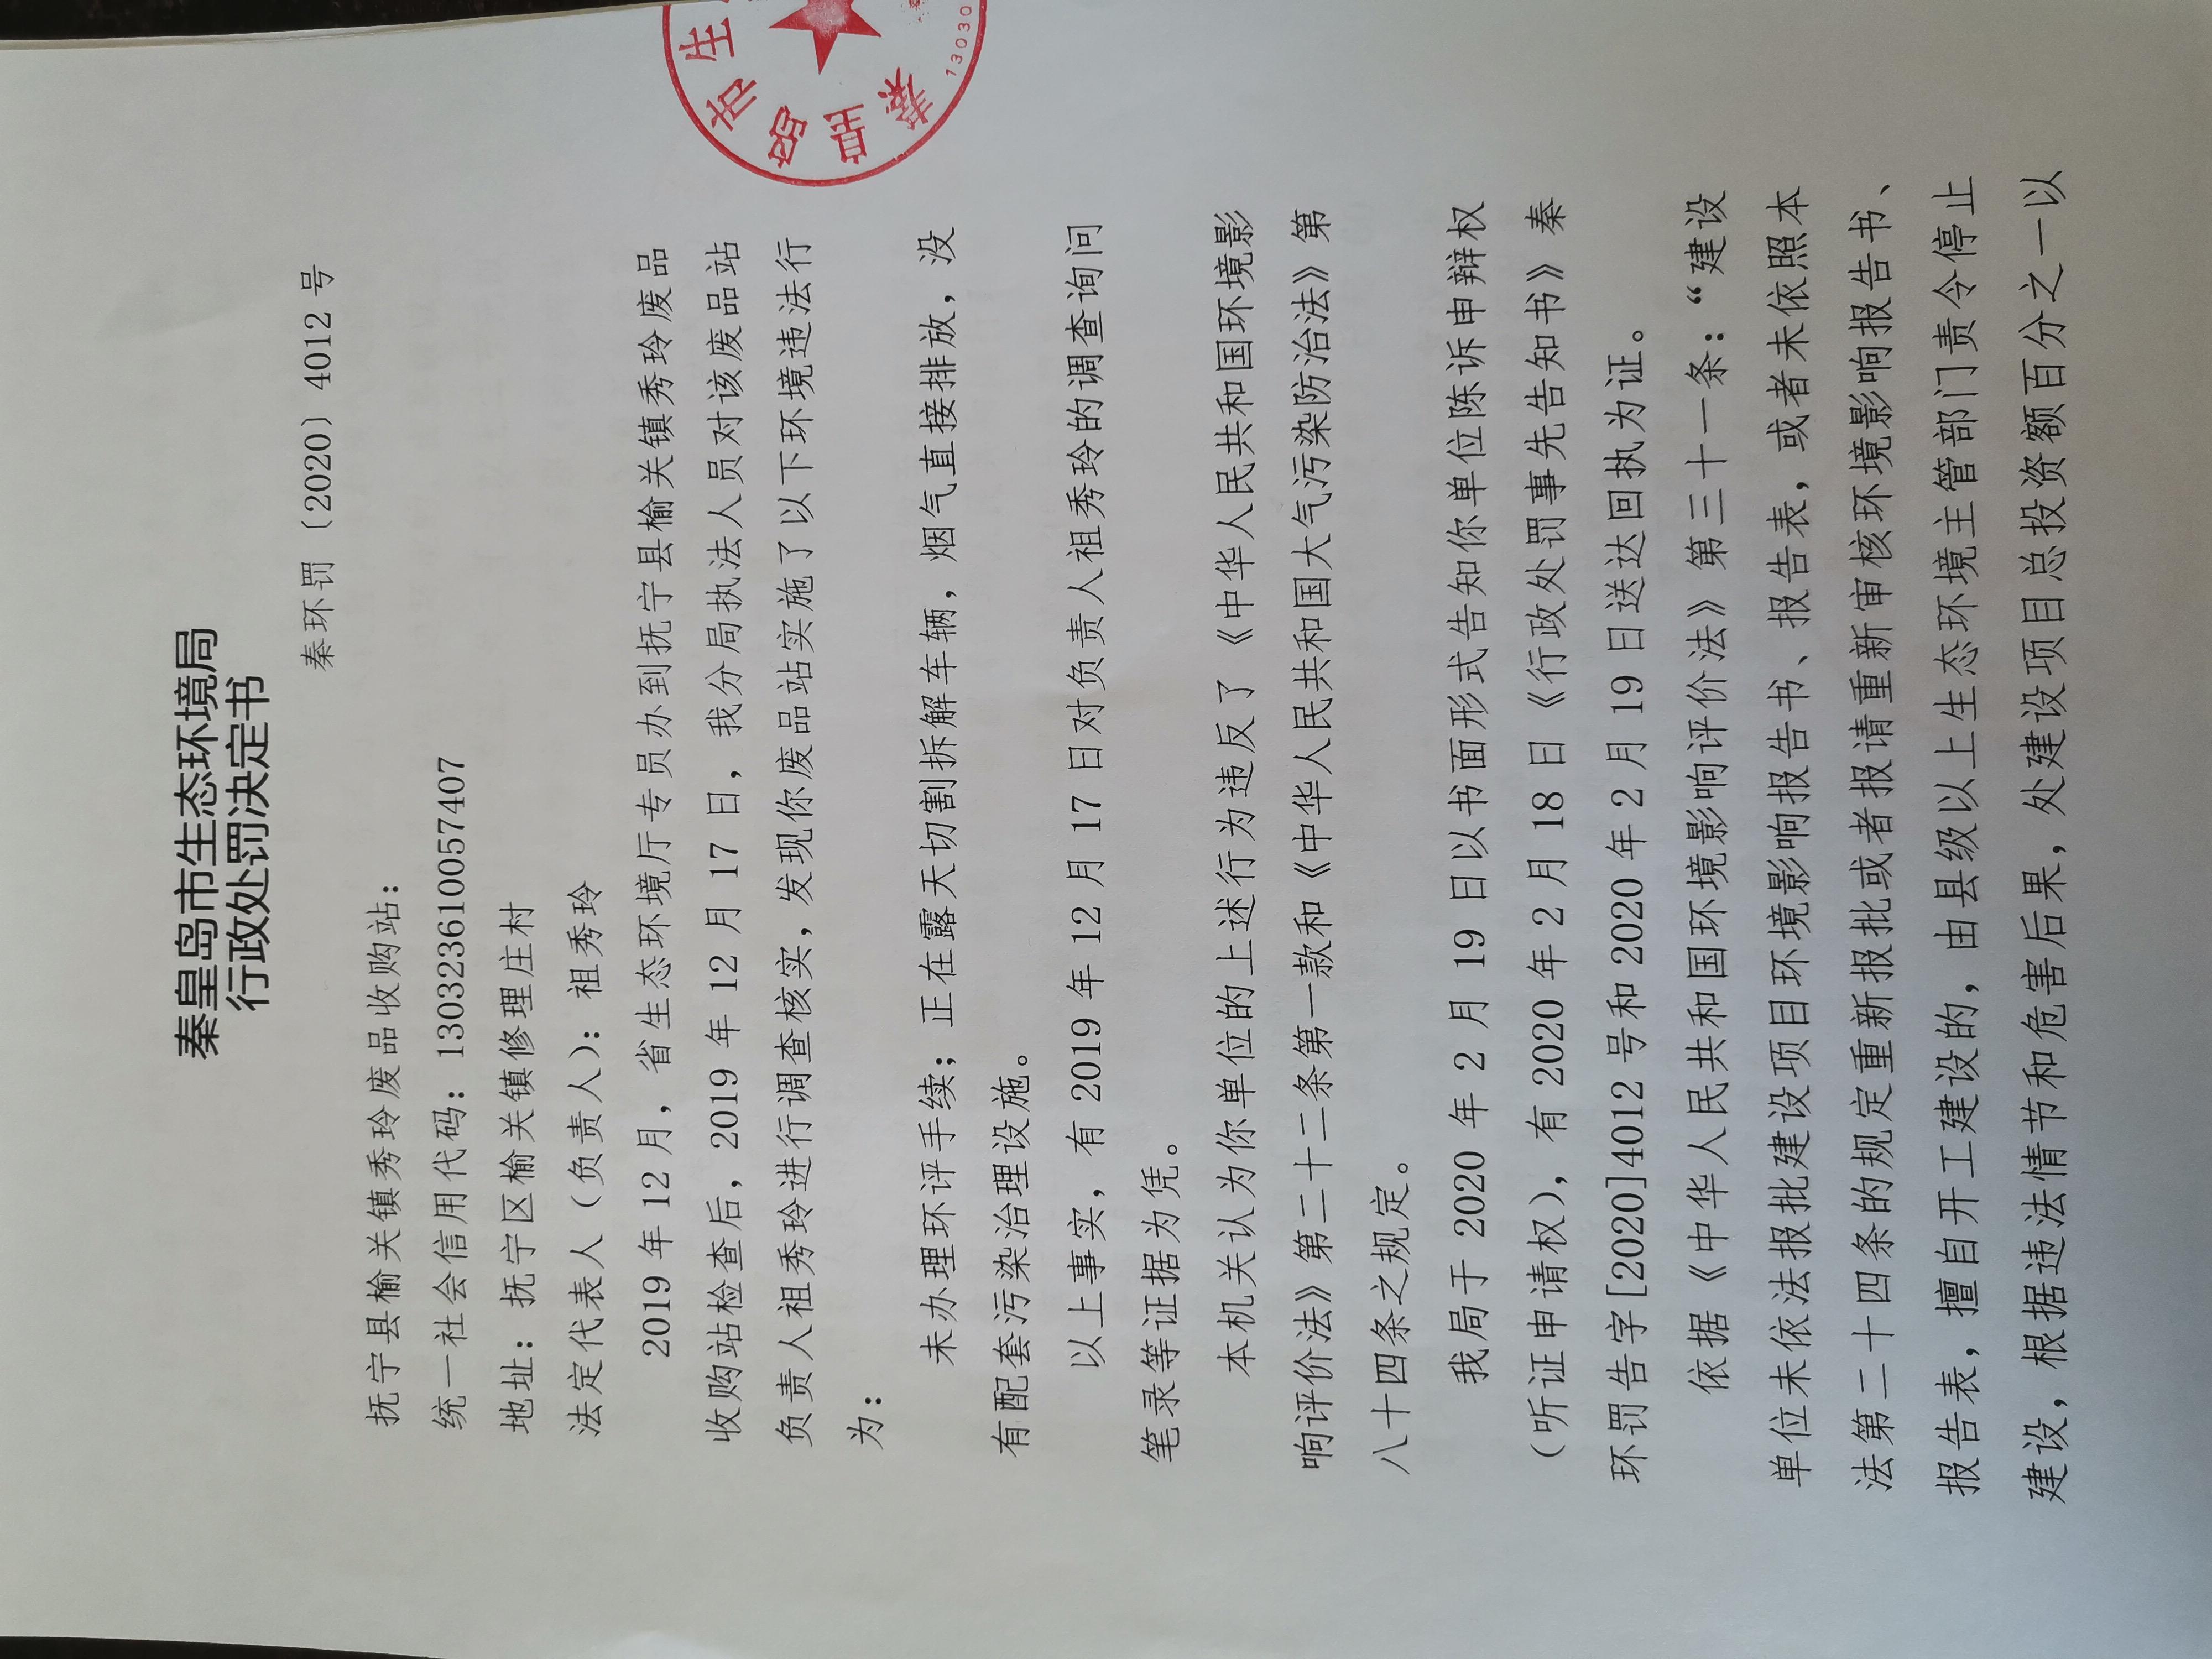 秦皇岛市生态环境局
行政处罚决定书
秦环罚〔2020〕4012号
抚宁县榆关镇秀玲废品收购站：
统一社会信用代码：130323610057407
地址：抚宁区榆关镇修理庄村
法定代表人（负责人）：祖秀玲
2019年12月，省生态环境厅专员办到抚宁县榆关镇秀玲废品
收购站检查后，2019年12月17日，我分局执法人员对该废品站
负责人祖秀玲进行调查核实，发现你废品站实施了以下环境违法行
为：
未办理环评手续；正在露天切割拆解车辆，烟气直接排放，没
有配套污染治理设施。
以上事实，有2019年12月17日对负责人祖秀玲的调查询问
笔录等证据为凭。
本机关认为你单位的上述行为违反了《中华人民共和国环境影
响评价法》第二十二条第一款和《中华人民共和国大气污染防治法》第
八十四条之规定。
我局于2020年2月19日以书面形式告知你单位陈诉申辩权
（听证申请权），有2020年2月18日《行政处罚事先告知书》秦
环罚告字[2020]4012号和2020年2月19日送达回执为证。
依据《中华人民共和国环境影响评价法》第三十一条：“建设
单位未依法报批建设项目环境影响报告书、报告表，或者未依照本
法第二十四条的规定重新报批或者报请重新审核环境影响报告书、
报告表，擅自开工建设的，由县级以上生态环境主管部门责令停止
建设，根据违法情节和危害后果，处建设项目总投资额百分之一以
秦皇岛市生
13030